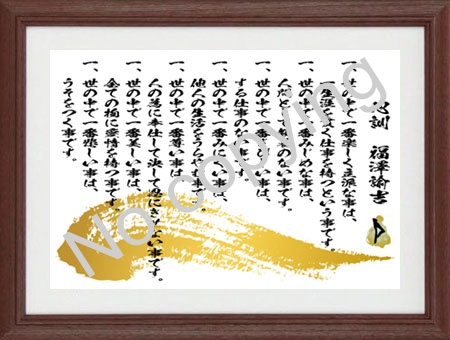 心訓　福澤諭吉
一、世の中で一番楽しく立派な事は、
一生涯を貫く仕事を持つという事です。
一、世の中で一番みじめな事は、
人間として教養のない事です。
一、世の中で一番さびしい事は、
する仕事のない事です。
一、世の中で一番みにくい事は、
他人の生活をうらやむ事です。
一、世の中で一番尊い事は、
人の為に奉仕して決して恩にきせない事です。
一、世の中で一番美しい事は、
全ての物に愛情を持つ事です。
一、世の中で一番悲しい事は、
うそをつく事です。
No copying